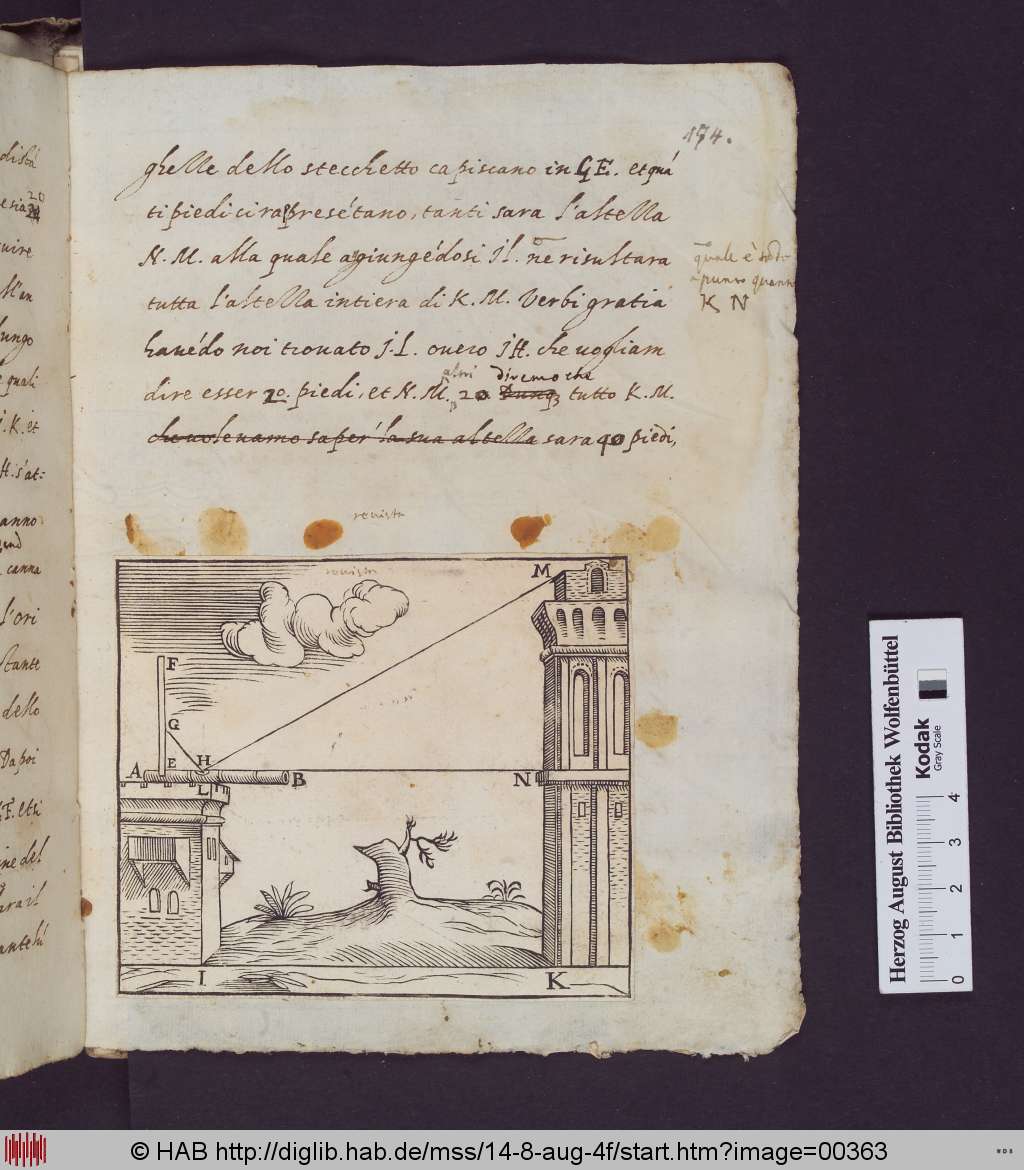 174.
ghelle dello stecchetto capiscano in GE. et quá
ti piedi ci rapresétano, tanti sara l'altella
N. M. alla quale agiungédosi Il. ne risultara
tutta l'altella intiera di K. M. Verbi gratia
havédo noi trovato I. L. overo IH. che vogliam
dire esser 20. piedi, et N. M. altri 20 diremo che tutto K. M.
che volevamo saper' la sua altella sara 40 piedi,
quale è
apunto quanto
K N
M
F
G
H
A
E
B
L
N
I
K
distá
20
uire
lungo
quali
K. et
H. s'at:
anno
canna
l'ori
stante
dello
Da poi
GE. et
ine del
Herzog August Bibliothek Wolfenbüttel
Kodak
Gray Scale
0 1 2 3 4
© HAB http://diglib.hab.de/mss/14-8-aug-4f/start.htm?image=00363